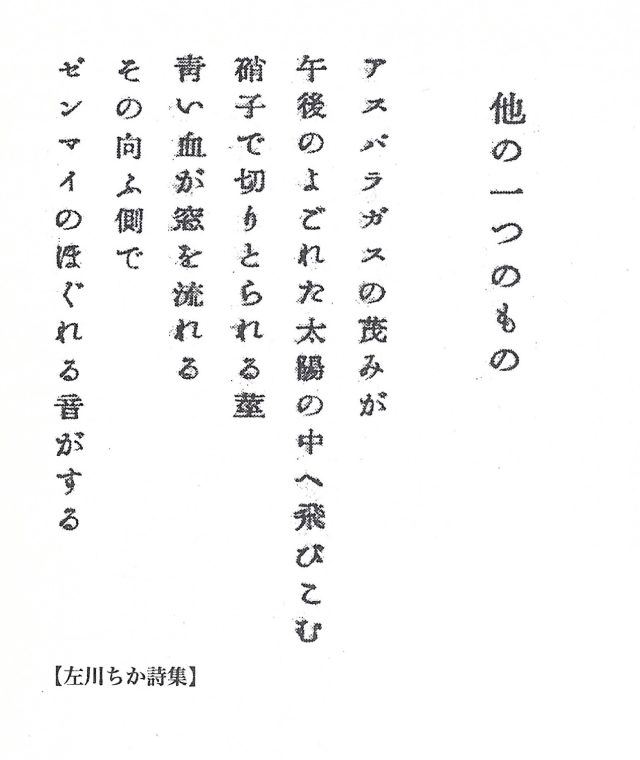 他の一つのもの
アスパラガスの茂みが
午後のよごれた太陽の中へ飛びこむ
硝子で切りとられる莖
靑い血が窓を流れる
その向ふ側で
ゼンマイのほぐれる音がする
【左川ちか詩集】